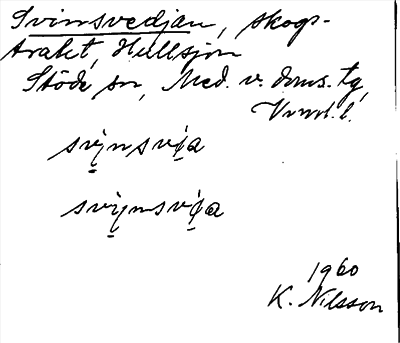 Svinsvedjan, skogs-
trakt, Hullsjön
Stöde sn, Med. v. doms. tg,
Vnrl. l.
svi̬nsvi̬a
svi̬nsvi̬a
1960
K. Nilsson